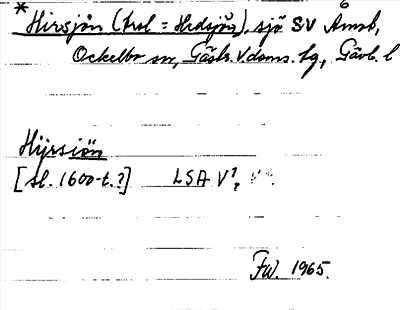 * Hirsjön (trol = Hedsjön), sjö SV Åmot,
Ockelbo sn, Gästr. V doms. tg, Gävl. l
Hijrsiön
[sl. 1600-t.?] LSA V?
FW. 1965.